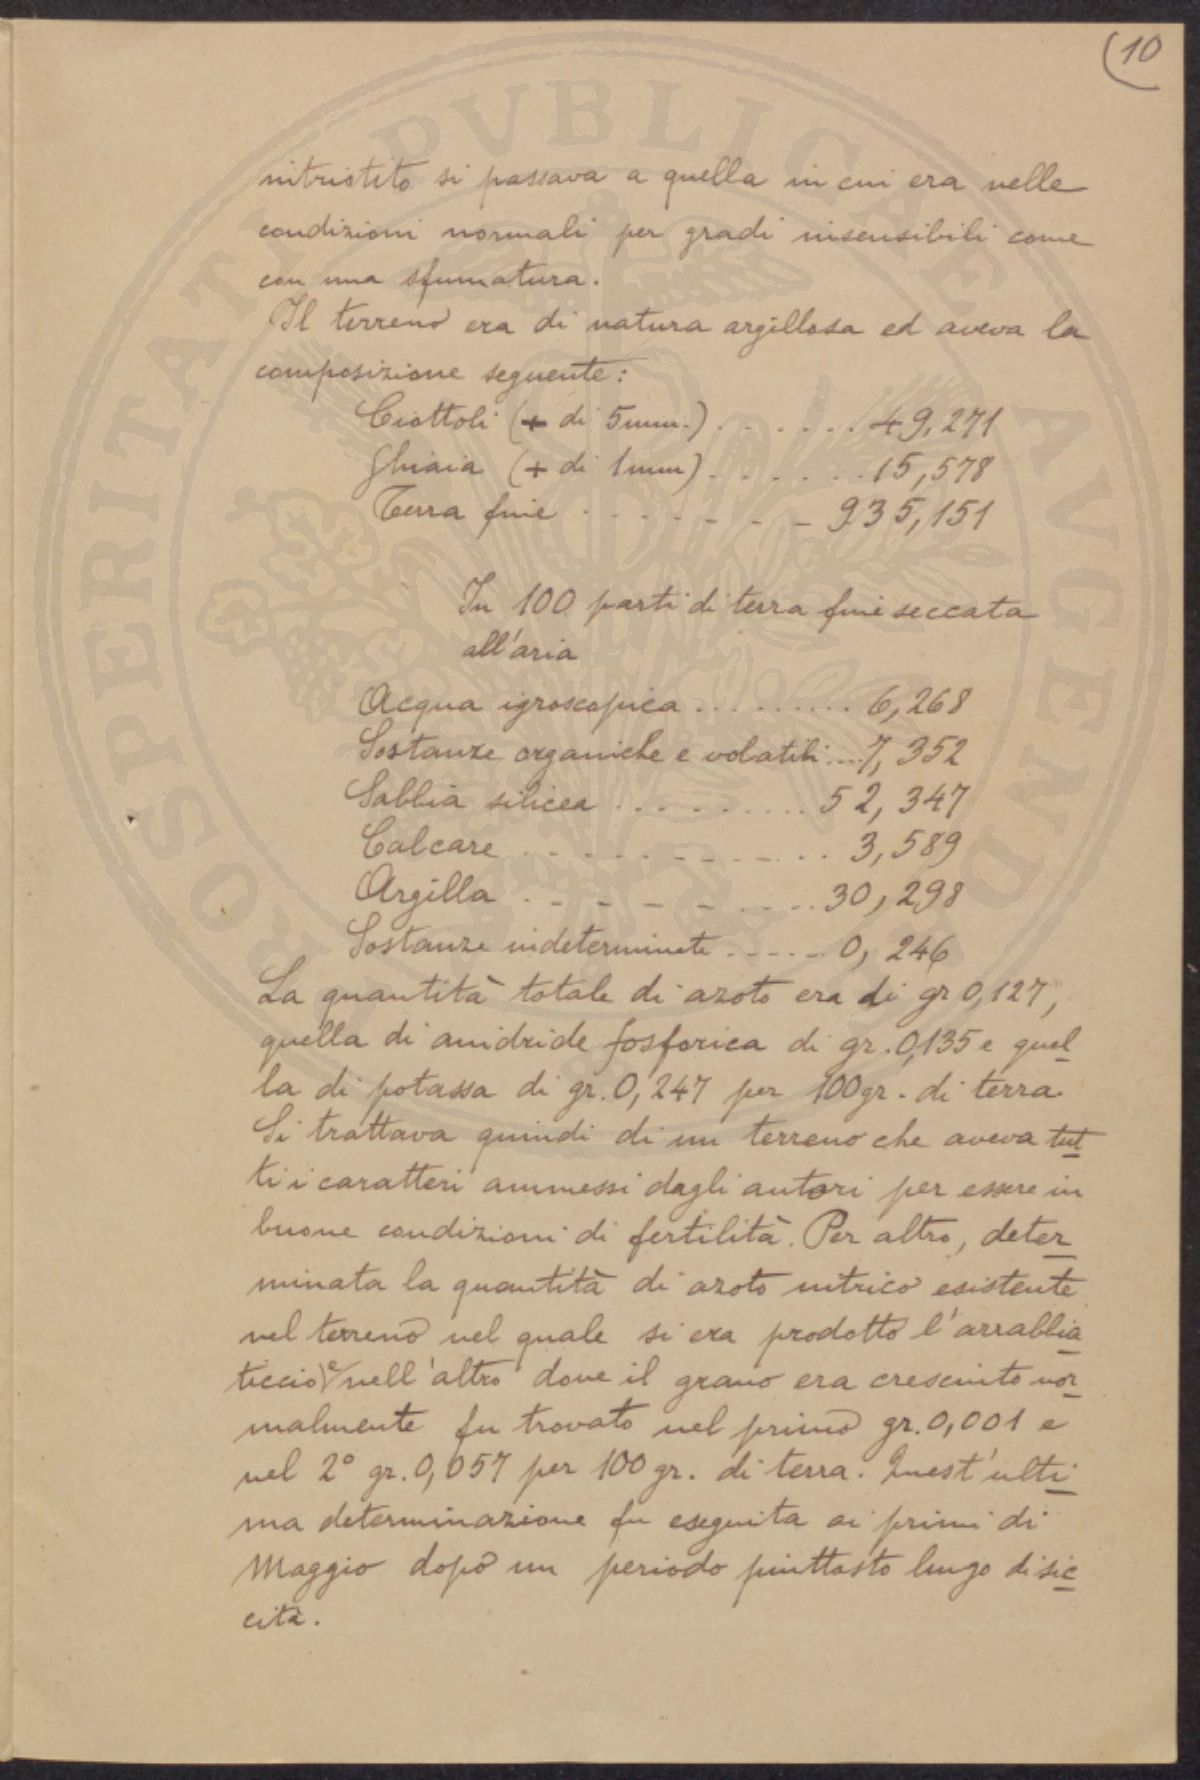 (10
nitristito si passava a quella in cui era nelle
condizioni normali per gradi insensibili come
con una sfumatura.
Il terreno era di natura argillosa ed aveva la
composizione seguente:
Ciottoli (+ di 5mm.) . . . . . . 49,271
Ghiaia (+ di 1mm) . . . . . . 15,578
Terra fine . . . . . . . 935,151
In 100 parti di terra fine seccata
all'aria
Acqua igroscopica . . . . . . . . . 6,268
Sostanze organiche e volatili .... 7,352
Sabbia silicea . . . . . . . . . 52,347
Calcare . . . . . . . . . . . 3,589
Argilla . . . . . . . . . 30,298
Sostanze indeterminate . . . . . 0,246
La quantità totale di azoto era di gr 0,127,
quella di anidride fosforica di gr. 0,135 e quel
la di potassa di gr. 0,247 per 100 gr. di terra.
Si trattava quindi di un terreno che aveva tut
ti i caratteri ammessi dagli autori per essere in
buone condizioni di fertilità. Per altro, deter
minata la quantità di azoto nitrico esistente
nel terreno nel quale si era prodotto l'arrabbia
ticcio e nell'altro dove il grano era cresciuto nor
malmente fu trovato nel primo gr. 0,001 e
nel 2° gr. 0,057 per 100 gr. di terra. Quest'ulti
ma determinazione fu eseguita ai primi di
Maggio dopo un periodo piuttosto lungo di sic
cità.
PROSPERITATI PVBLICAE AVGENDAE